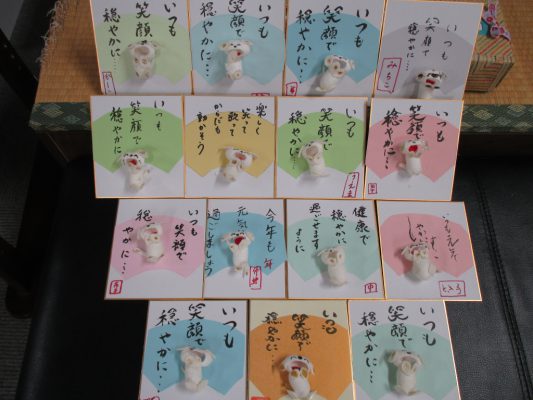 いつも
笑顔で
穏やかに…
いつも
笑顔で
穏やかに…
いつも
笑顔で
穏やかに…
いつも
笑顔で
穏やかに…
みちこ
いつも
笑顔で
穏やかに
楽しく
笑って
歌って
からだも
動かそう
いつも
笑顔で
穏やかに…
うえま
いつも
笑顔で
穏やかに…
いつも
笑顔で
穏やかに…
今年も
元気
過ごしましょう
健康で
穏やかに
過ごせます
ように
とき子
いつも
笑顔で
穏やかに…
いつも
笑顔で
穏やかに
いつも
笑顔で
穏やかに…